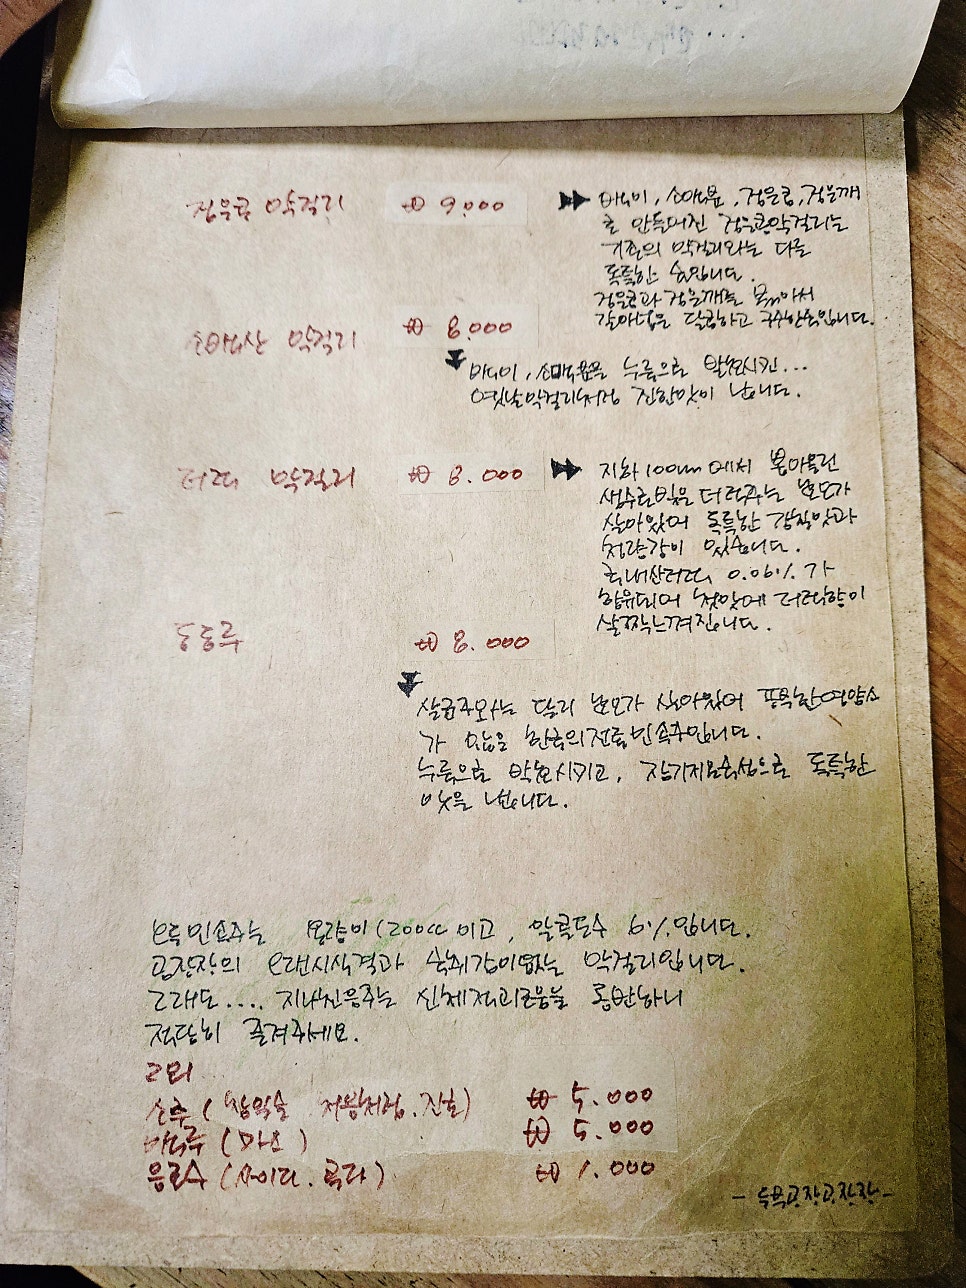 검은콩 막걸리 ₩ 9.000
▶▶ 백미, 소맥분, 검은콩, 검은깨
로 만들어진 검은콩막걸리는
기존의 막걸리와는 다른
독특한 술입니다.
검은콩과 검은깨를 볶아서
갈아넣은 달콤하고 구수한술입니다.
소백산 막걸리 ₩ 8.000
백미, 소맥분을 누룩으로 발효시킨...
옛날막걸리처럼 진한맛이 납니다.
더덕 막걸리 ₩ 8.000
▶▶ 지하 100m에서 뽑아올린
생수로빚은 더덕주는 효모가
살아있어 독특한 감칠맛과
청량감이 있습니다.
국내산더덕 0.06%가
함유되어 첫맛에 더덕향이
살짝느껴집니다.
동동주 ₩ 8.000
살균주와는 달리 효모가 살아있어 풍부한영양소
가 있는 한국의전통민속주입니다.
누룩으로 발효시키고, 장기저온숙성으로 독특한
맛을 냅니다.
모든민속주는 용량이 1200cc이고, 알콜도수 6%입니다.
공장장의 오랜시식결과 숙취감이없는 막걸리입니다.
그래도.... 지나친음주는 신체적괴로움을 동반하니
적당히 즐겨주세요.
그외
소주 (참이슬. 처음처럼. 진로) ₩ 5.000
맥주 (카스) ₩ 5.000
음료수 (사이다. 콜라) ₩ 1.000